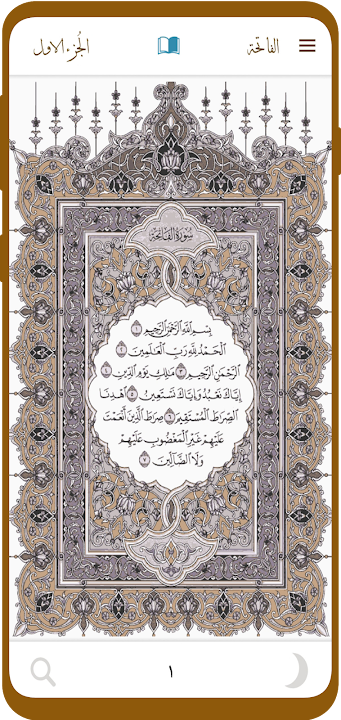 الفاتحة
الجزء الاول
سورة الفاتحة
بسم الله الرحمن الرحيم ١
الحمد لله رب العالمين ٢
الرحمن الرحيم ٣ مالك يوم الدين ٤
إياك نعبد وإياك نستعين ٥ اهدنا
الصراط المستقيم ٦ صراط الذين أنعمت
عليهم غير المغضوب عليهم
ولا الضالين ٧
١